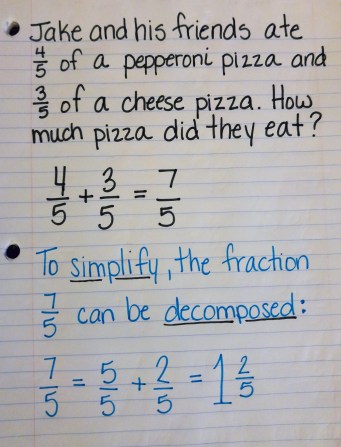 • Jake and his friends ate
4/5 of a pepperoni pizza and
3/5 of a cheese pizza. How
much pizza did they eat?
4/5 + 3/5 = 7/5
• To simplify, the fraction
7/5 can be decomposed:
7/5 = 5/5 + 2/5 = 1 2/5